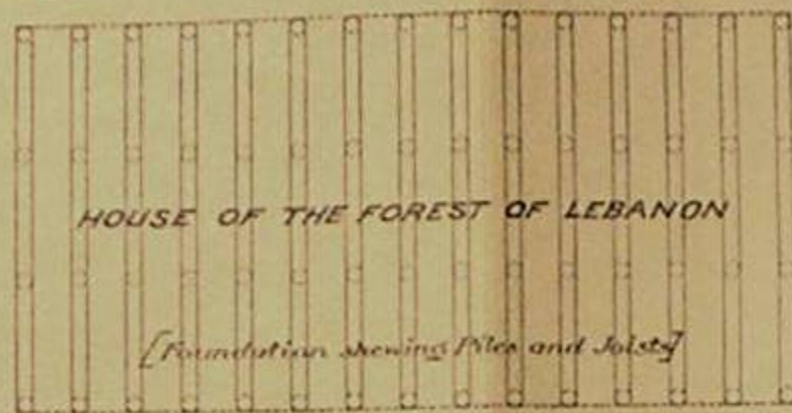 HOUSE OF THE FOREST OF LEBANON
[Foundation shewing Piles and Joists]